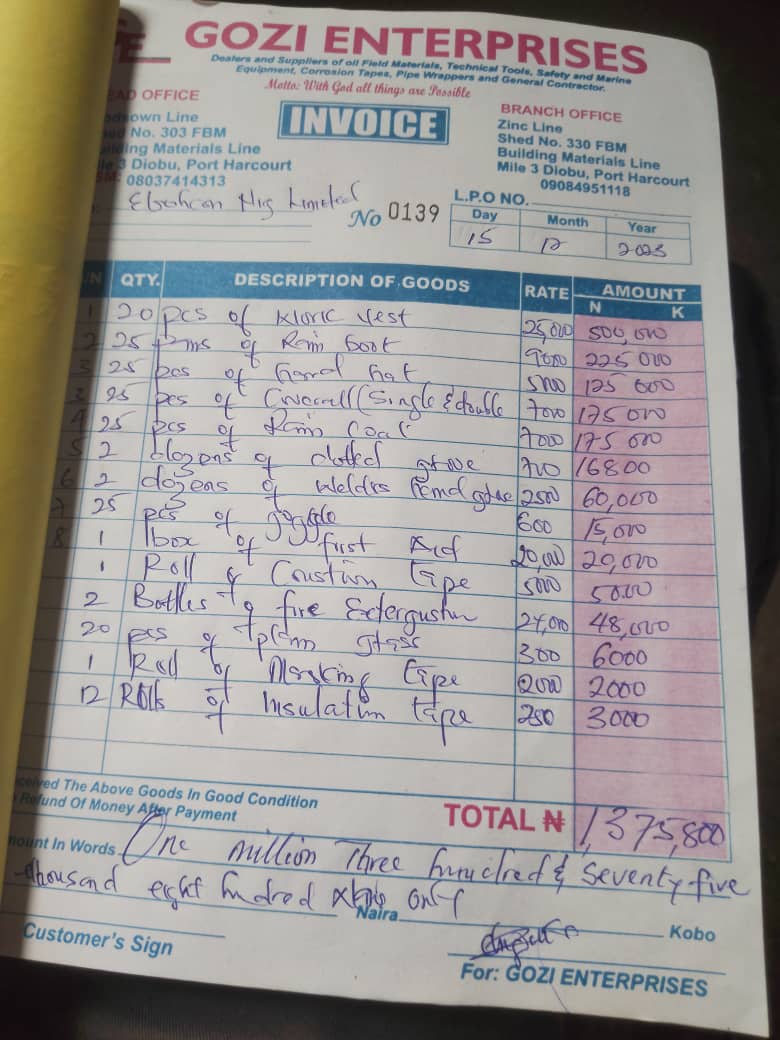 GOZI ENTERPRISES
Dealers and Suppliers of oil Field Materials, Technical Tools, Safety and Marine
Equipment, Corrosion Tapes, Pipe Wrappers and General Contractor.
Motto: With God all things are Possible
EAD OFFICE
own Line
No. 303 FBM
ding Materials Line
3 Diobu, Port Harcourt
08037414313
INVOICE
BRANCH OFFICE
Zinc Line
Shed No. 330 FBM
Building Materials Line
Mile 3 Diobu, Port Harcourt
09084951118
Nig Limited
No 0139
L.P.O NO.
Day Month Year
15 12 2023
/N QTY. DESCRIPTION OF GOODS RATE AMOUNT
N K
1 20 pcs of vest 25,000 500,000
2 25 of Rain boot 9000 225 000
3 25 pcs of Hat 5000 125 000
3 25 pcs of (Single & double 7000 175 000
4 25 pcs of Rain Coat 7000 175 000
5 2 dozens of dotted 700 16800
6 2 dozens of 2500 60,000
7 25 pcs of 600 15,000
8 1 box of first Aid 20,000 20,000
1 Roll of tape 5000 5000
2 Bottles of fire 24,000 48,000
20 pcs of plain glass 300 6000
1 Roll of Masking tape 2000 2000
12 Rolls of Insulation tape 250 3000
ceived The Above Goods In Good Condition
Refund Of Money After Payment
TOTAL ₦ 1,375,800
ount In Words One million Three hundred & Seventy five
thousand eight hundred only
Naira Kobo
Customer's Sign
For: GOZI ENTERPRISES